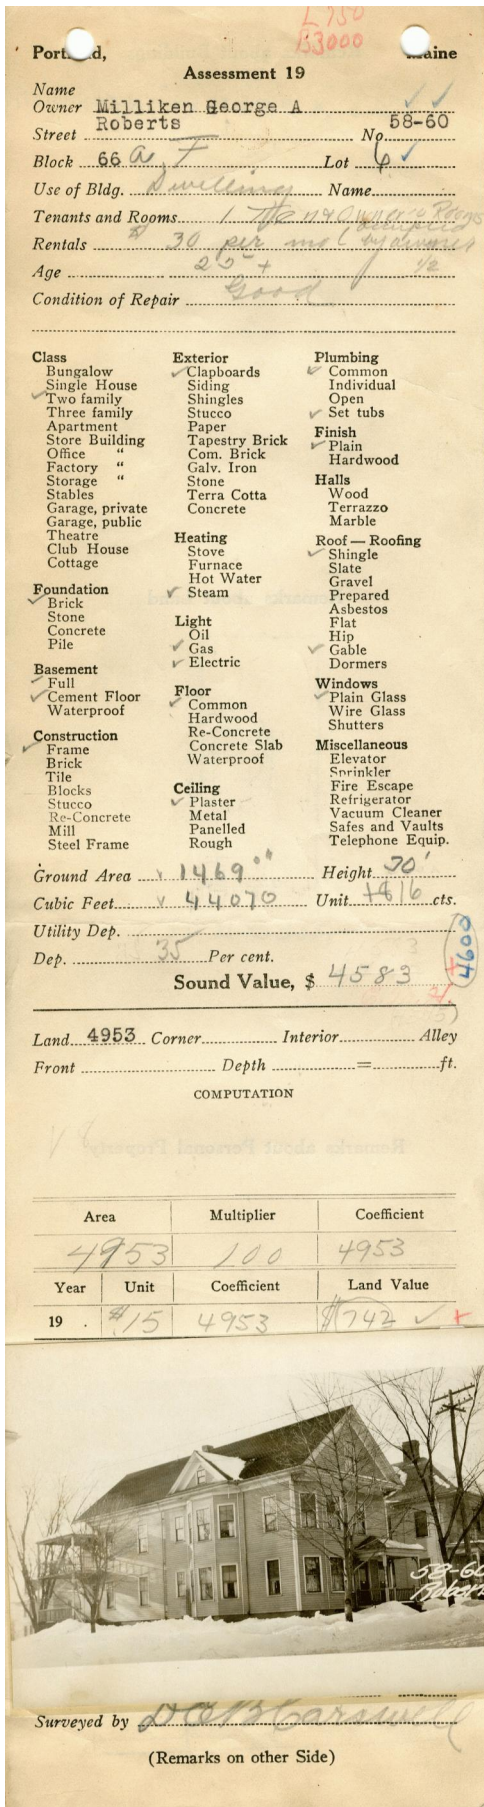 L 750
B3000
Portland, Maine
Assessment 19
Name
Owner Milliken George A
Street Roberts No. 58-60
Block 66 A F Lot 6
Use of Bldg. Dwelling Name
Tenants and Rooms 1 Rooms
Rentals $ 30 per mo (occupied by owner
Age 25+ 1/2
Condition of Repair Good
Class
Bungalow
Single House
Two family
Three family
Apartment
Store Building
Office "
Factory "
Storage "
Stables
Garage, private
Garage, public
Theatre
Club House
Cottage
Foundation
Brick
Stone
Concrete
Pile
Basement
Full
Cement Floor
Waterproof
Construction
Frame
Brick
Tile
Blocks
Stucco
Re-Concrete
Mill
Steel Frame
Exterior
Clapboards
Siding
Shingles
Stucco
Paper
Tapestry Brick
Com. Brick
Galv. Iron
Stone
Terra Cotta
Concrete
Heating
Stove
Furnace
Hot Water
Steam
Light
Oil
Gas
Electric
Floor
Common
Hardwood
Re-Concrete
Concrete Slab
Waterproof
Ceiling
Plaster
Metal
Panelled
Rough
Plumbing
Common
Individual
Open
Set tubs
Finish
Plain
Hardwood
Halls
Wood
Terrazzo
Marble
Roof — Roofing
Shingle
Slate
Gravel
Prepared
Asbestos
Flat
Hip
Gable
Dormers
Windows
Plain Glass
Wire Glass
Shutters
Miscellaneous
Elevator
Sprinkler
Fire Escape
Refrigerator
Vacuum Cleaner
Safes and Vaults
Telephone Equip.
Ground Area 1469 Height 30'
Cubic Feet 44070 Unit 16 cts.
Utility Dep.
Dep. 35 Per cent.
4600
Sound Value, $ 4583
Land 4953 Corner Interior Alley
Front Depth = ft.
COMPUTATION
Area Multiplier Coefficient
4953 100 4953
Year Unit Coefficient Land Value
19 . $.15 4953 $742
58-60
Robert
Surveyed by Carswell
(Remarks on other Side)